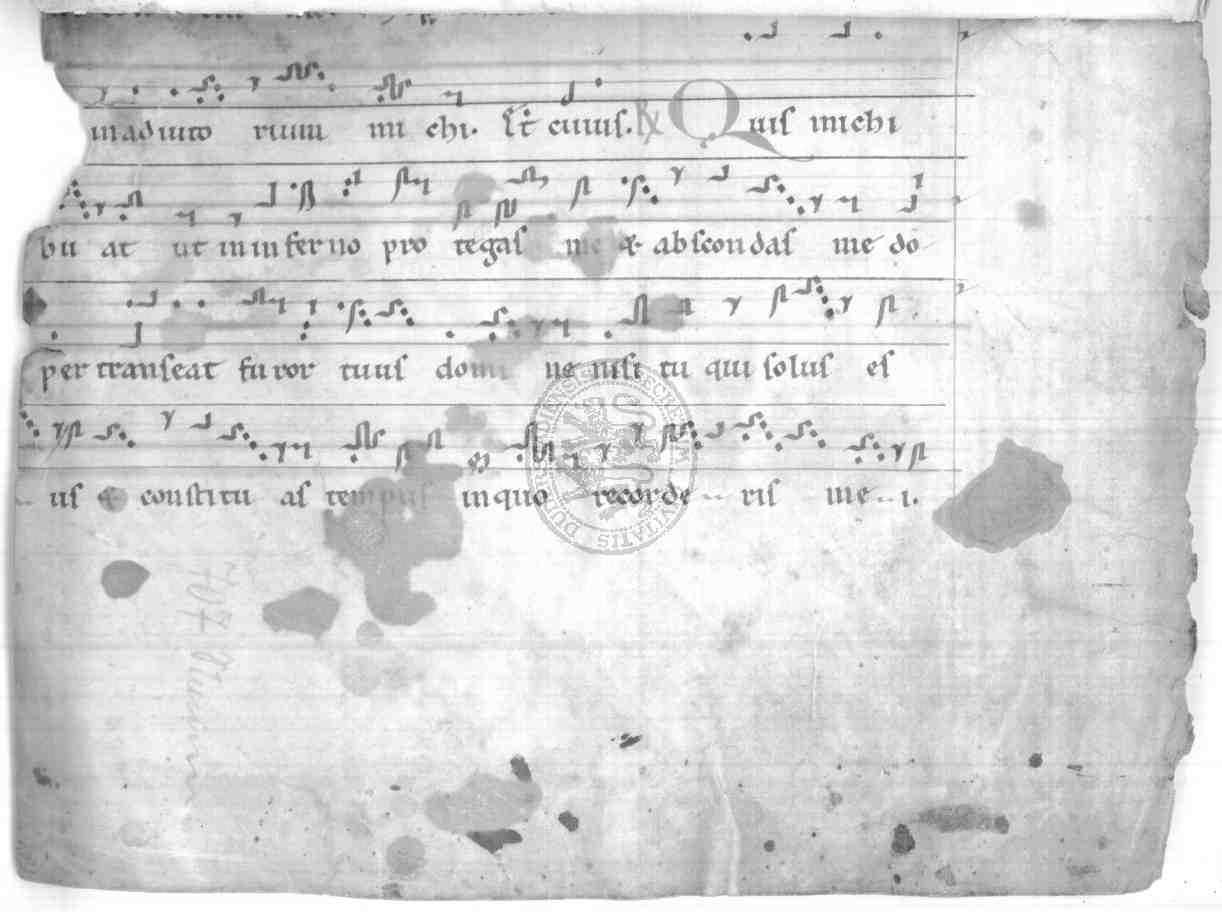 in adiuto rium mi chi. Et cuius. ℟ Quis michi
bu at ut in inferno pro tegas me & abscondas me do
per transeat furor tuus domi ne nisi tu qui solus es
us & constitu as tempus in quo recorde ris me i.